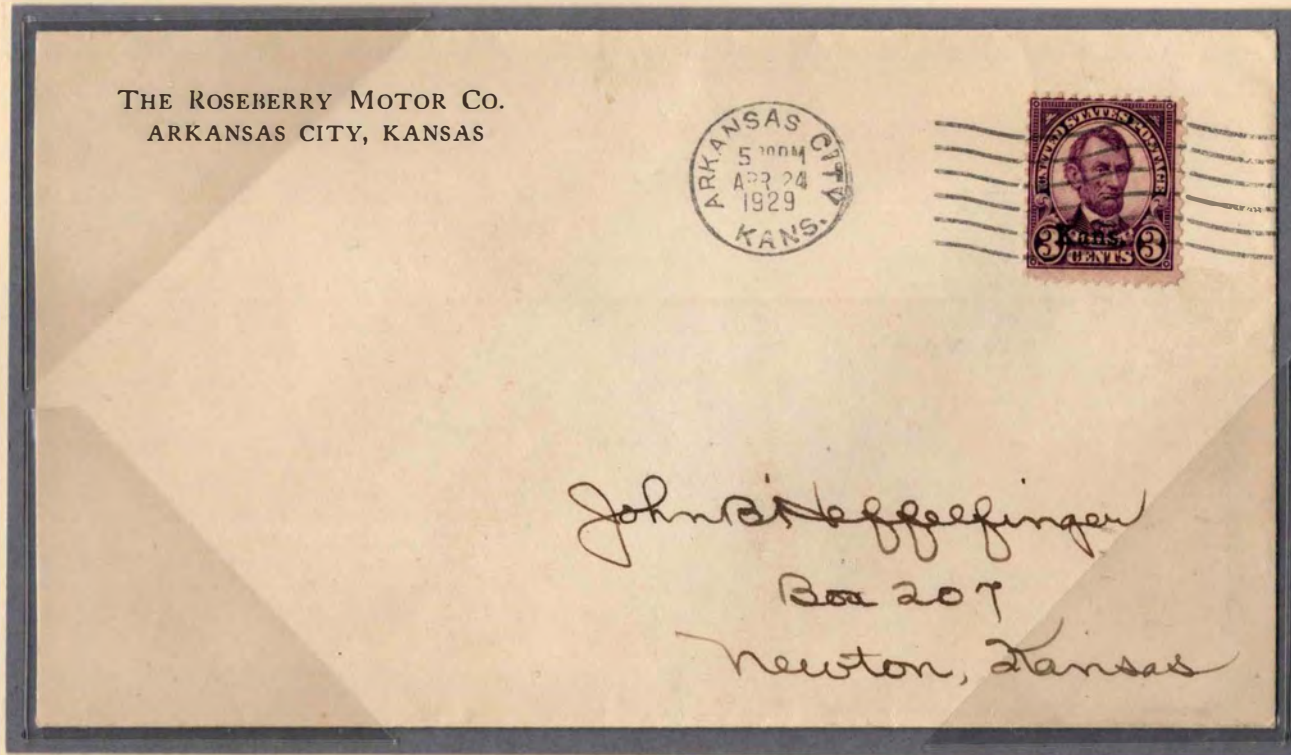 THE ROSEBERRY MOTOR CO.
ARKANSAS CITY, KANSAS
ARKANSAS CITY
APR 24
1929
KANS.
UNITED STATES POSTAGE
Kans.
3 CENTS 3
John B Heffelfinger
Box 207
Newton, Kansas